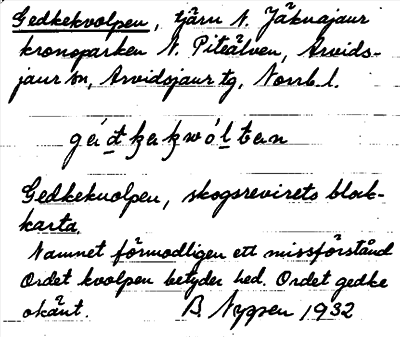 Gedkekvolpen, tjärn N. Jäknajaur
kronoparken N. Piteälven, Arvids-
jaur sn, Arvidsjaur tg, Norrb. l.
Gedkekuolpen, skogsrevirets block-
karta.
Namnet förmodligen ett missförstånd
Ordet kvolpen betyder hed. Ordet gedke
okänt. B Nyper 1932